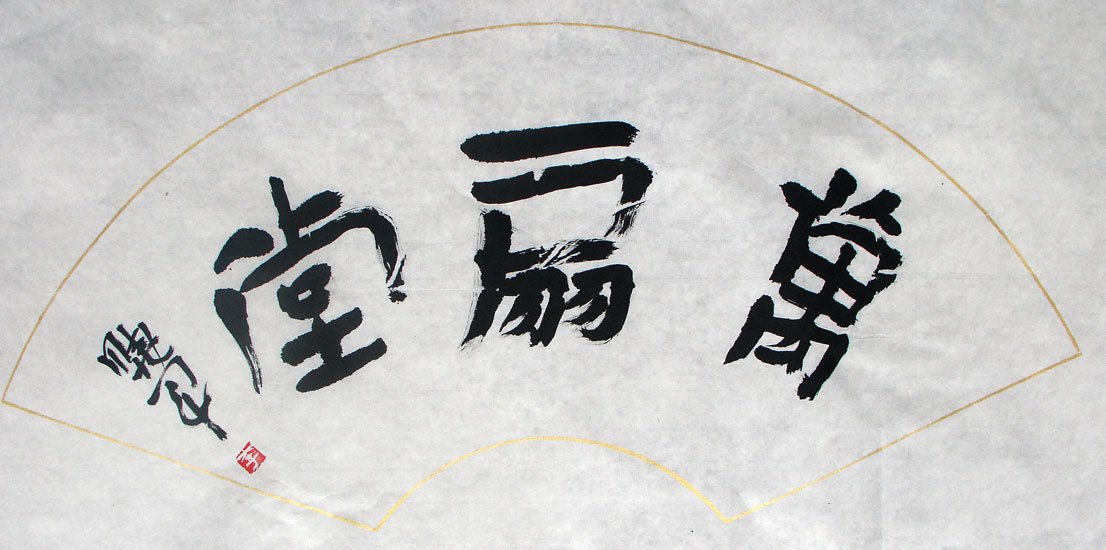 萬扇堂